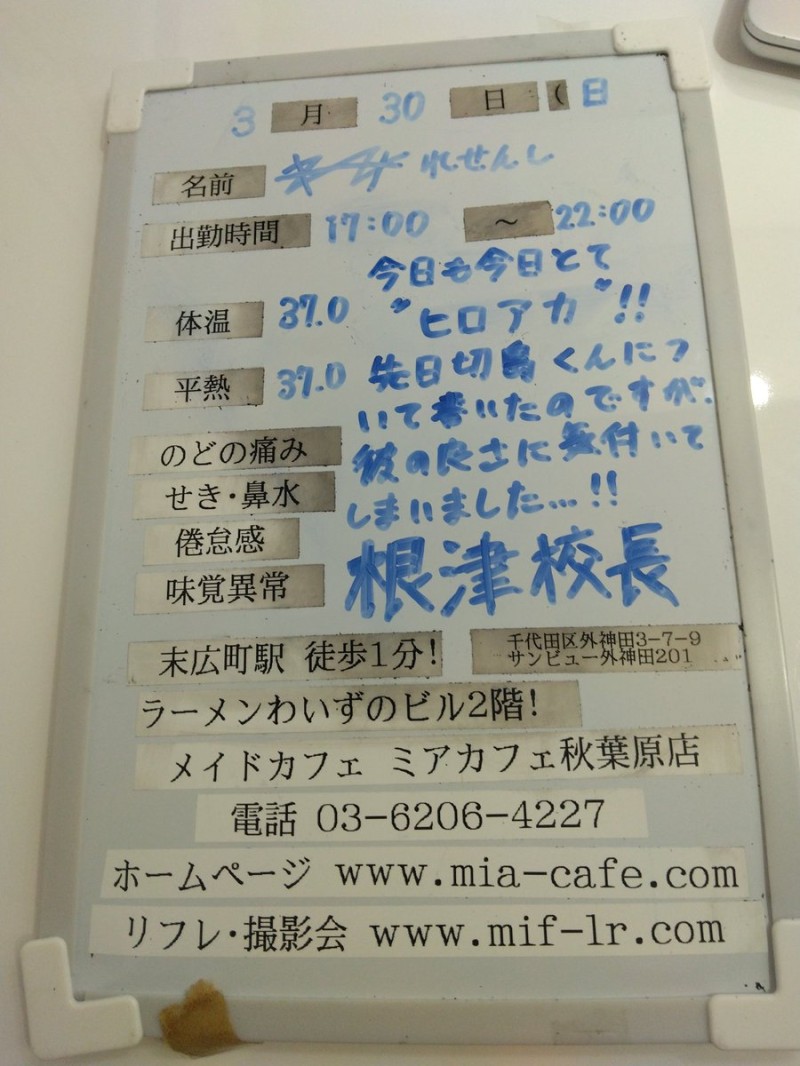 3 月 30 日 ( 日
名前 れせんし
出勤時間 17:00 ～ 22:00
今日も今日とて
体温 37.0 "ヒロアカ"!!
平熱 37.0 先日切島くんにつ
いて書いたのですが、
のどの痛み 彼の良さに気付いて
せき・鼻水 しまいました…!!
倦怠感
味覚異常 根津校長
末広町駅 徒歩1分!
千代田区外神田3-7-9
サンビュー外神田201
ラーメンわいずのビル2階!
メイドカフェ ミアカフェ秋葉原店
電話 03-6206-4227
ホームページ www.mia-cafe.com
リフレ・撮影会 www.mif-lr.com